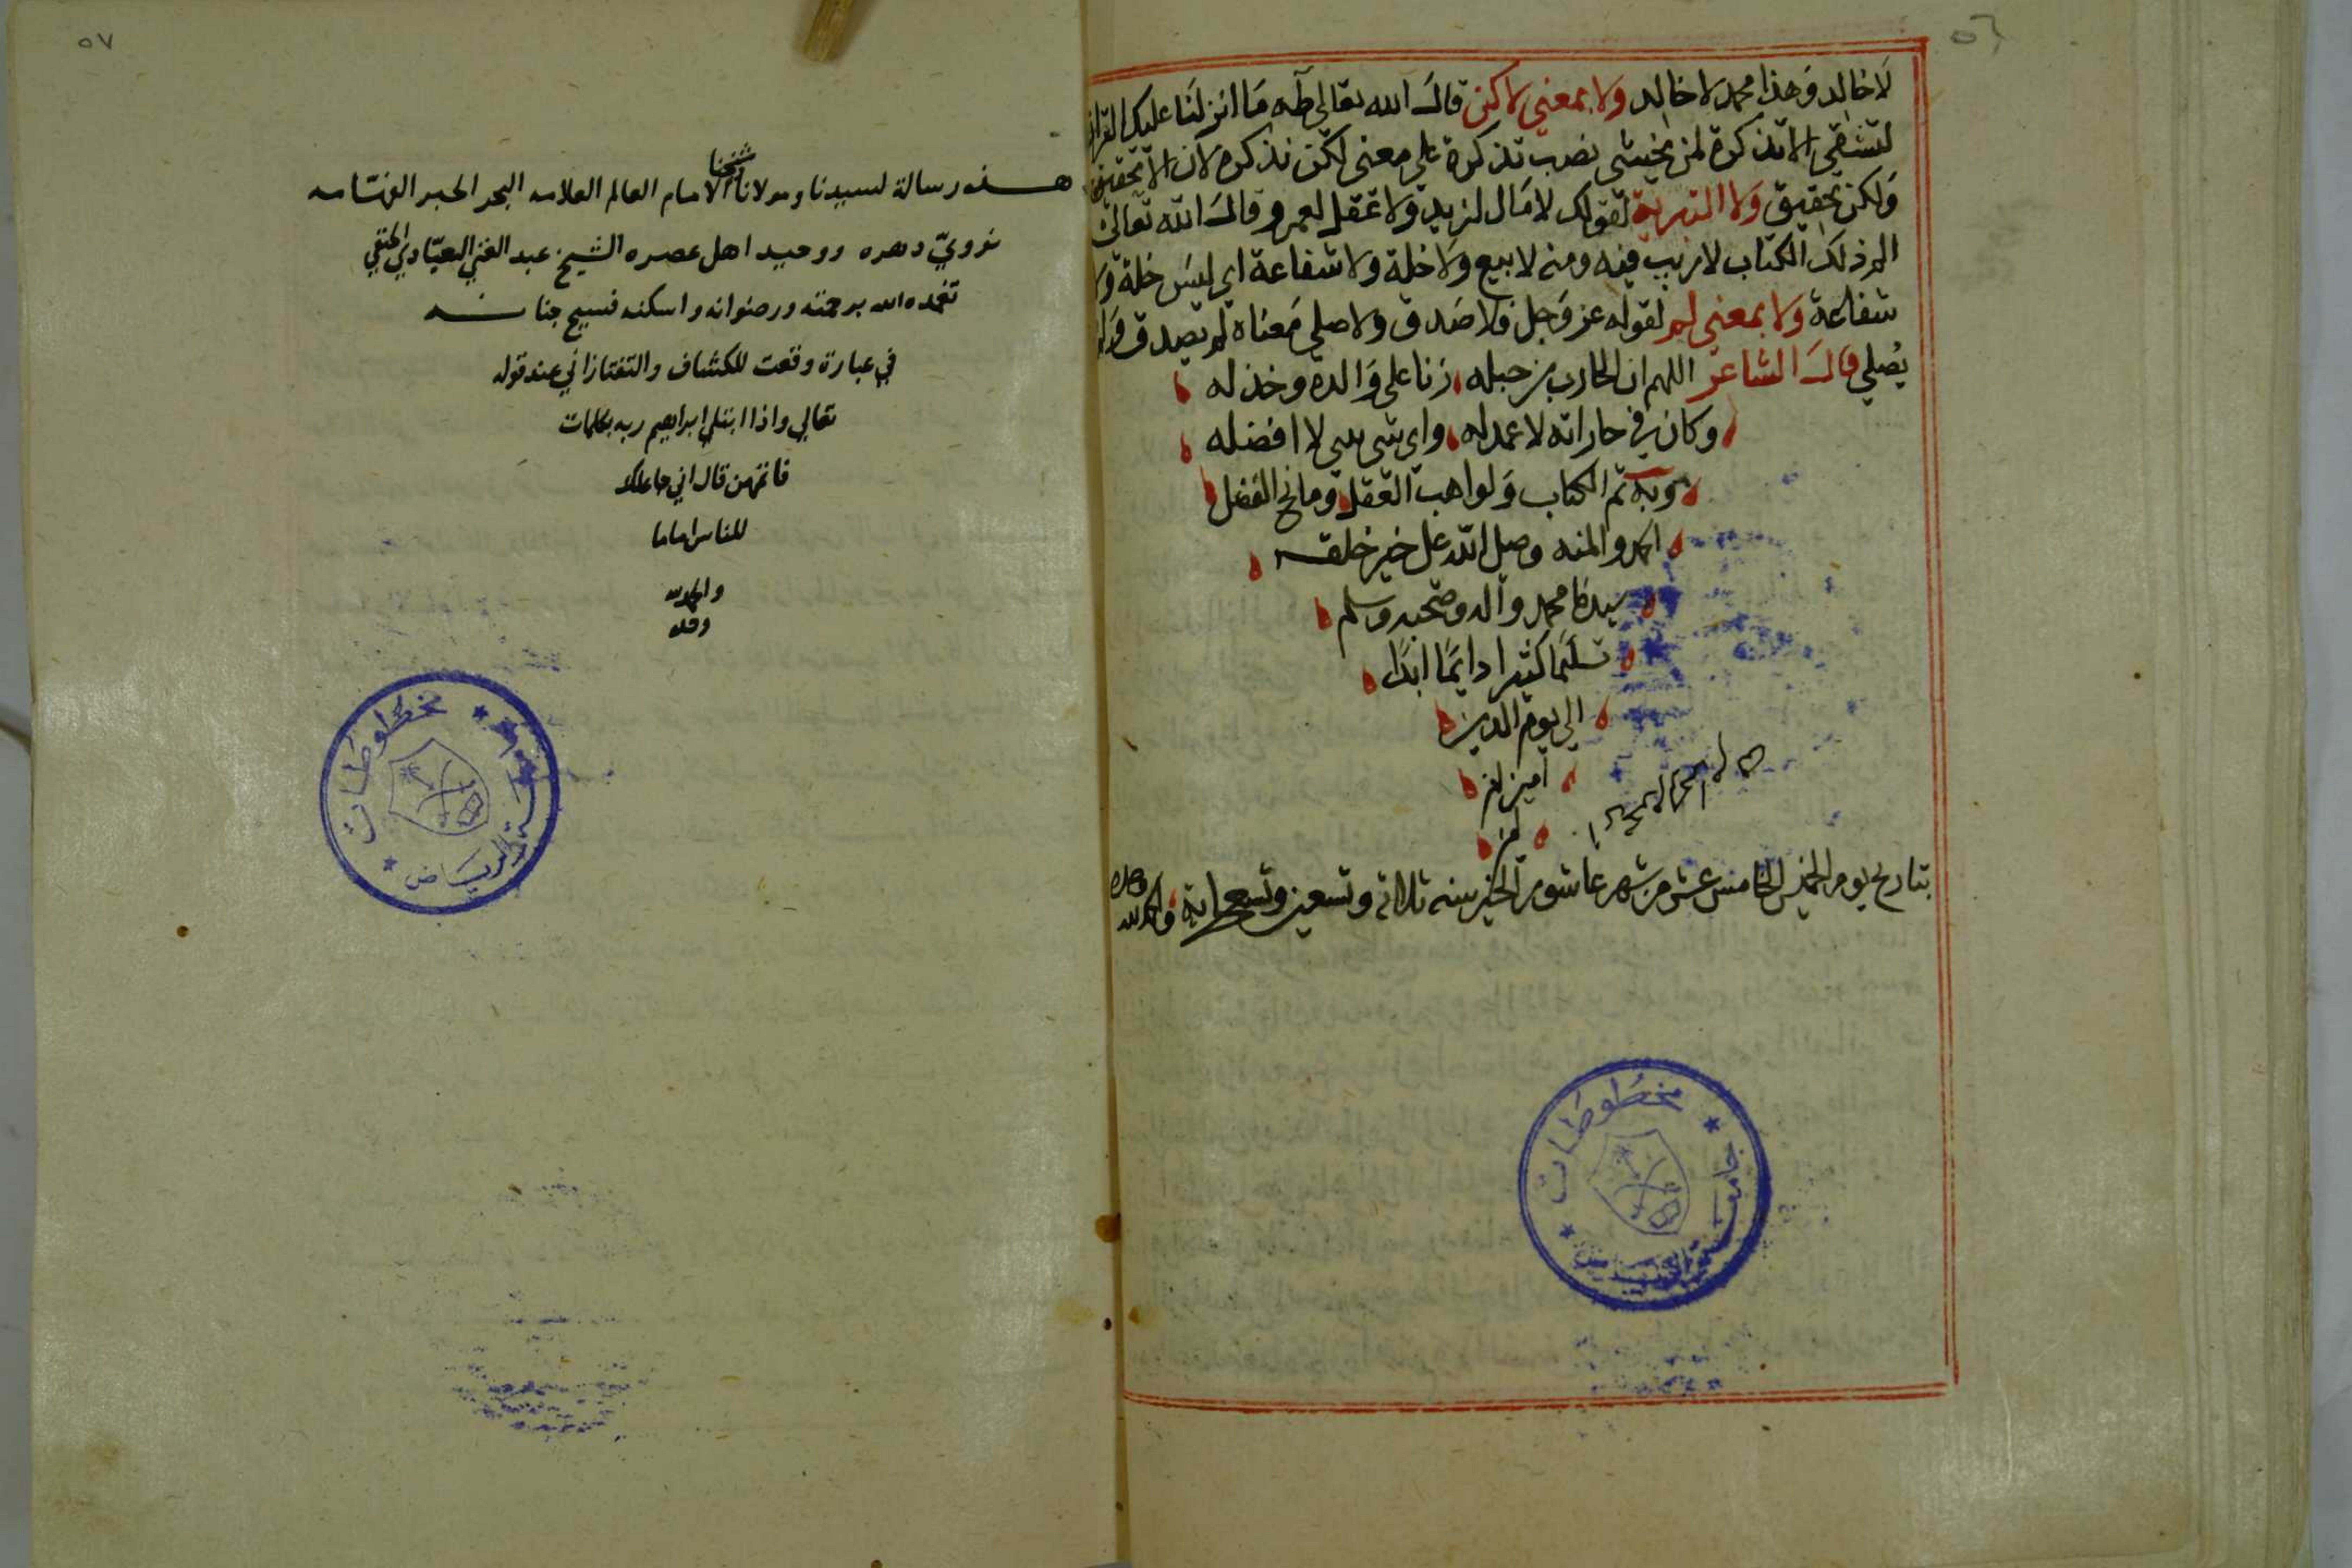 ٥٦
لا خالد وهذا محمد لا خالد ولا بمعني لاكن قال الله تعالى طه ما انزلنا عليك القران
لتشقى الا تذكرة لمن يخشى نصب تذكرة على معنى لكن تذكرة لان الا تحقيق
ولكن تحقيق ولا التبرية لقولك لا مال لزيد ولا عقل لعمرو قال الله تعالى
الم ذلك الكتاب لا ريب فيه ومنه لا بيع ولا خلة ولا شفاعة اي ليس خلة ولا
شفاعة ولا بمعنى لم لقوله عز وجل فلا صدق ولا صلى معناه لم يصدق ولم
يصلي قال الشاعر اللهم ان الحارث بن جبله زنا على والده وخذله
وكان في جاراته لا عهد له واي شي سي لا افضله
وبه تم الكتاب ولواهب العقل ومانح الفضل
الحمد والمنه وصلى الله على خير خلقه
سيدنا محمد واله وصحبه وسلم
تسليما كثيرا دايما ابدا
الى يوم الدين
امين
بتاريخ يوم الخميس الخامس عشر من شهر عاشور الخير سنه ثلاثة وتسعين وتسعماية والحمد لله
وحده
جامعة الرياض
مخطوطات
٥٧
هذه رسالة لسيدنا ومولانا شيخنا الامام العالم العلامه البحر الحبر الفهامه
نوويّ دهره ووحيد اهل عصره الشيخ عبد الغني العبّادي الحنفي
تغمده الله برحمته ورضوانه واسكنه فسيح جنانه
في عبارة وقعت للكشاف والتفتازاني عند قوله
تعالي واذا ابتلي ابراهيم ربه بكلمات
فاتمهن قال اني جاعلك
للناس اماما
والحمد لله
وحده
جامعة الرياض
مخطوطات